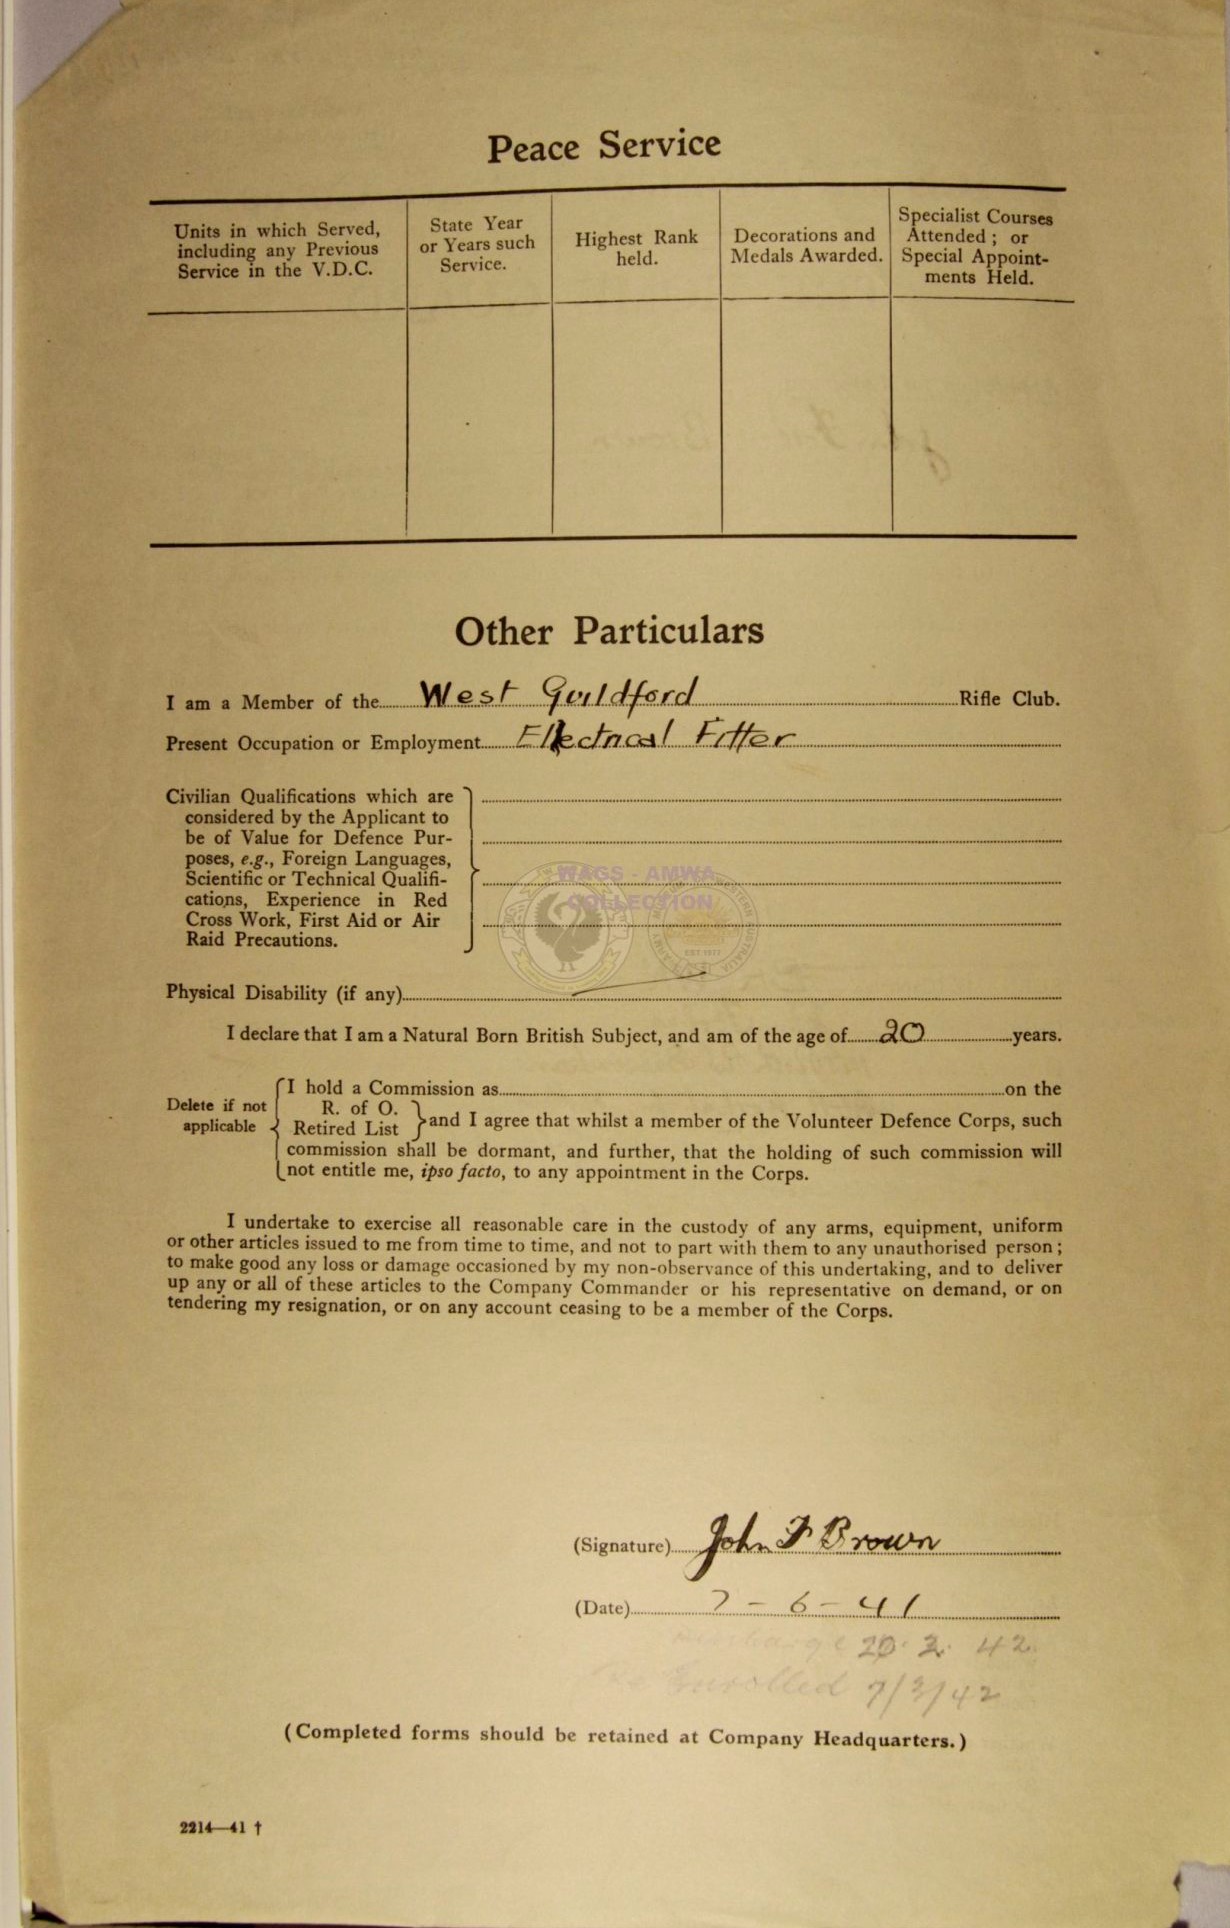 Peace Service
Units in which Served,
including any Previous
Service in the V.D.C.
State Year
or Years such
Service.
Highest Rank
held.
Decorations and
Medals Awarded.
Specialist Courses
Attended ; or
Special Appoint-
ments Held.
Other Particulars
I am a Member of the West Guildford Rifle Club.
Present Occupation or Employment Electrical Fitter
Civilian Qualifications which are
considered by the Applicant to
be of Value for Defence Pur-
poses, e.g., Foreign Languages,
Scientific or Technical Qualifi-
cations, Experience in Red
Cross Work, First Aid or Air
Raid Precautions.
WAGS - AMWA
COLLECTION
EST 1977
Physical Disability (if any)
I declare that I am a Natural Born British Subject, and am of the age of 20 years.
Delete if not
applicable
I hold a Commission as on the
R. of O.
Retired List
and I agree that whilst a member of the Volunteer Defence Corps, such
commission shall be dormant, and further, that the holding of such commission will
not entitle me, ipso facto, to any appointment in the Corps.
I undertake to exercise all reasonable care in the custody of any arms, equipment, uniform
or other articles issued to me from time to time, and not to part with them to any unauthorised person ;
to make good any loss or damage occasioned by my non-observance of this undertaking, and to deliver
up any or all of these articles to the Company Commander or his representative on demand, or on
tendering my resignation, or on any account ceasing to be a member of the Corps.
(Signature) John F Brown
(Date) 7 - 6 - 41
Discharge 20. 2. 42
Re Enrolled 7/3/42
(Completed forms should be retained at Company Headquarters.)
2214—41 †